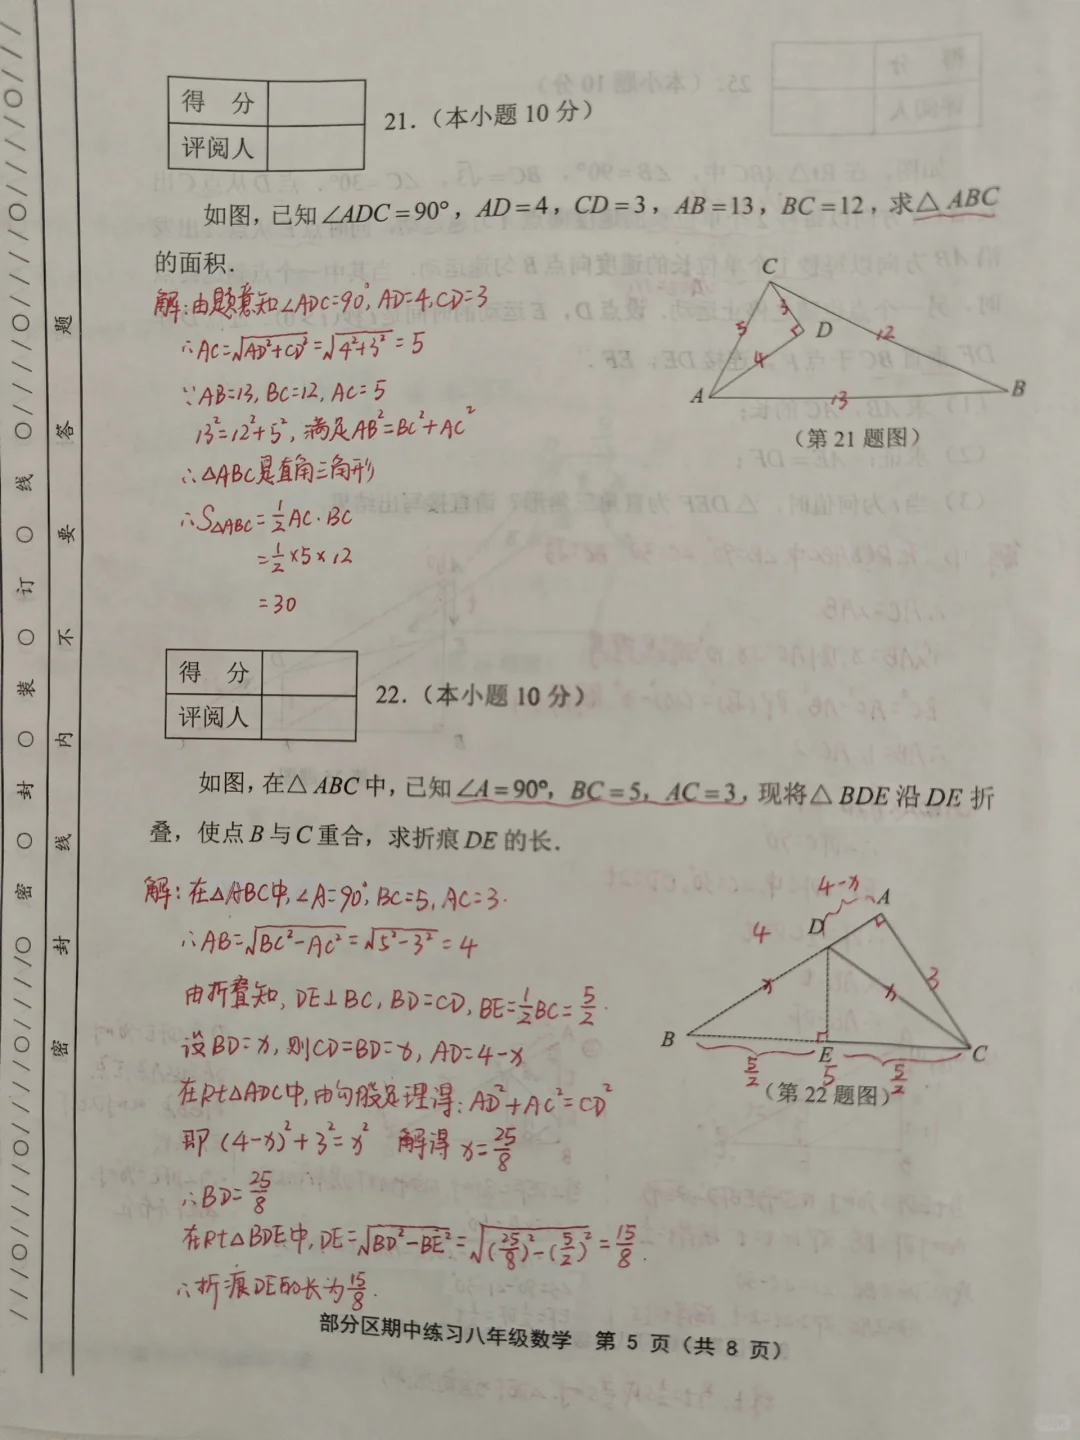 得 分
评阅人
21.(本小题10分)
如图,已知∠ADC=90°,AD=4,CD=3,AB=13,BC=12,求△ABC
的面积.
解:由题意知∠ADC=90°,AD=4,CD=3
∴AC=√(AD²+CD²)=√(4²+3²)=5
∵AB=13,BC=12,AC=5
13²=12²+5²,满足AB²=BC²+AC²
∴△ABC是直角三角形
∴S△ABC=1/2 AC·BC
=1/2×5×12
=30
C
3
5
D
12
4
A
13
B
(第21题图)
得 分
评阅人
22.(本小题10分)
如图,在△ABC中,已知∠A=90°,BC=5,AC=3,现将△BDE沿DE折
叠,使点B与C重合,求折痕DE的长.
解:在△ABC中,∠A=90°,BC=5,AC=3.
∴AB=√(BC²-AC²)=√(5²-3²)=4
由折叠知,DE⊥BC,BD=CD,BE=1/2BC=5/2.
设BD=x,则CD=BD=x,AD=4-x
在Rt△ADC中,由勾股定理得:AD²+AC²=CD²
即(4-x)²+3²=x² 解得x=25/8
∴BD=25/8
在Rt△BDE中,DE=√(BD²-BE²)=√((25/8)²-(5/2)²)=15/8.
∴折痕DE的长为15/8.
4-x
A
D
4
x
x
3
B
E
C
5/2
5
5/2
(第22题图)
部分区期中练习八年级数学 第5页(共8页)
密○封○装○订○线
密封线内不要答题